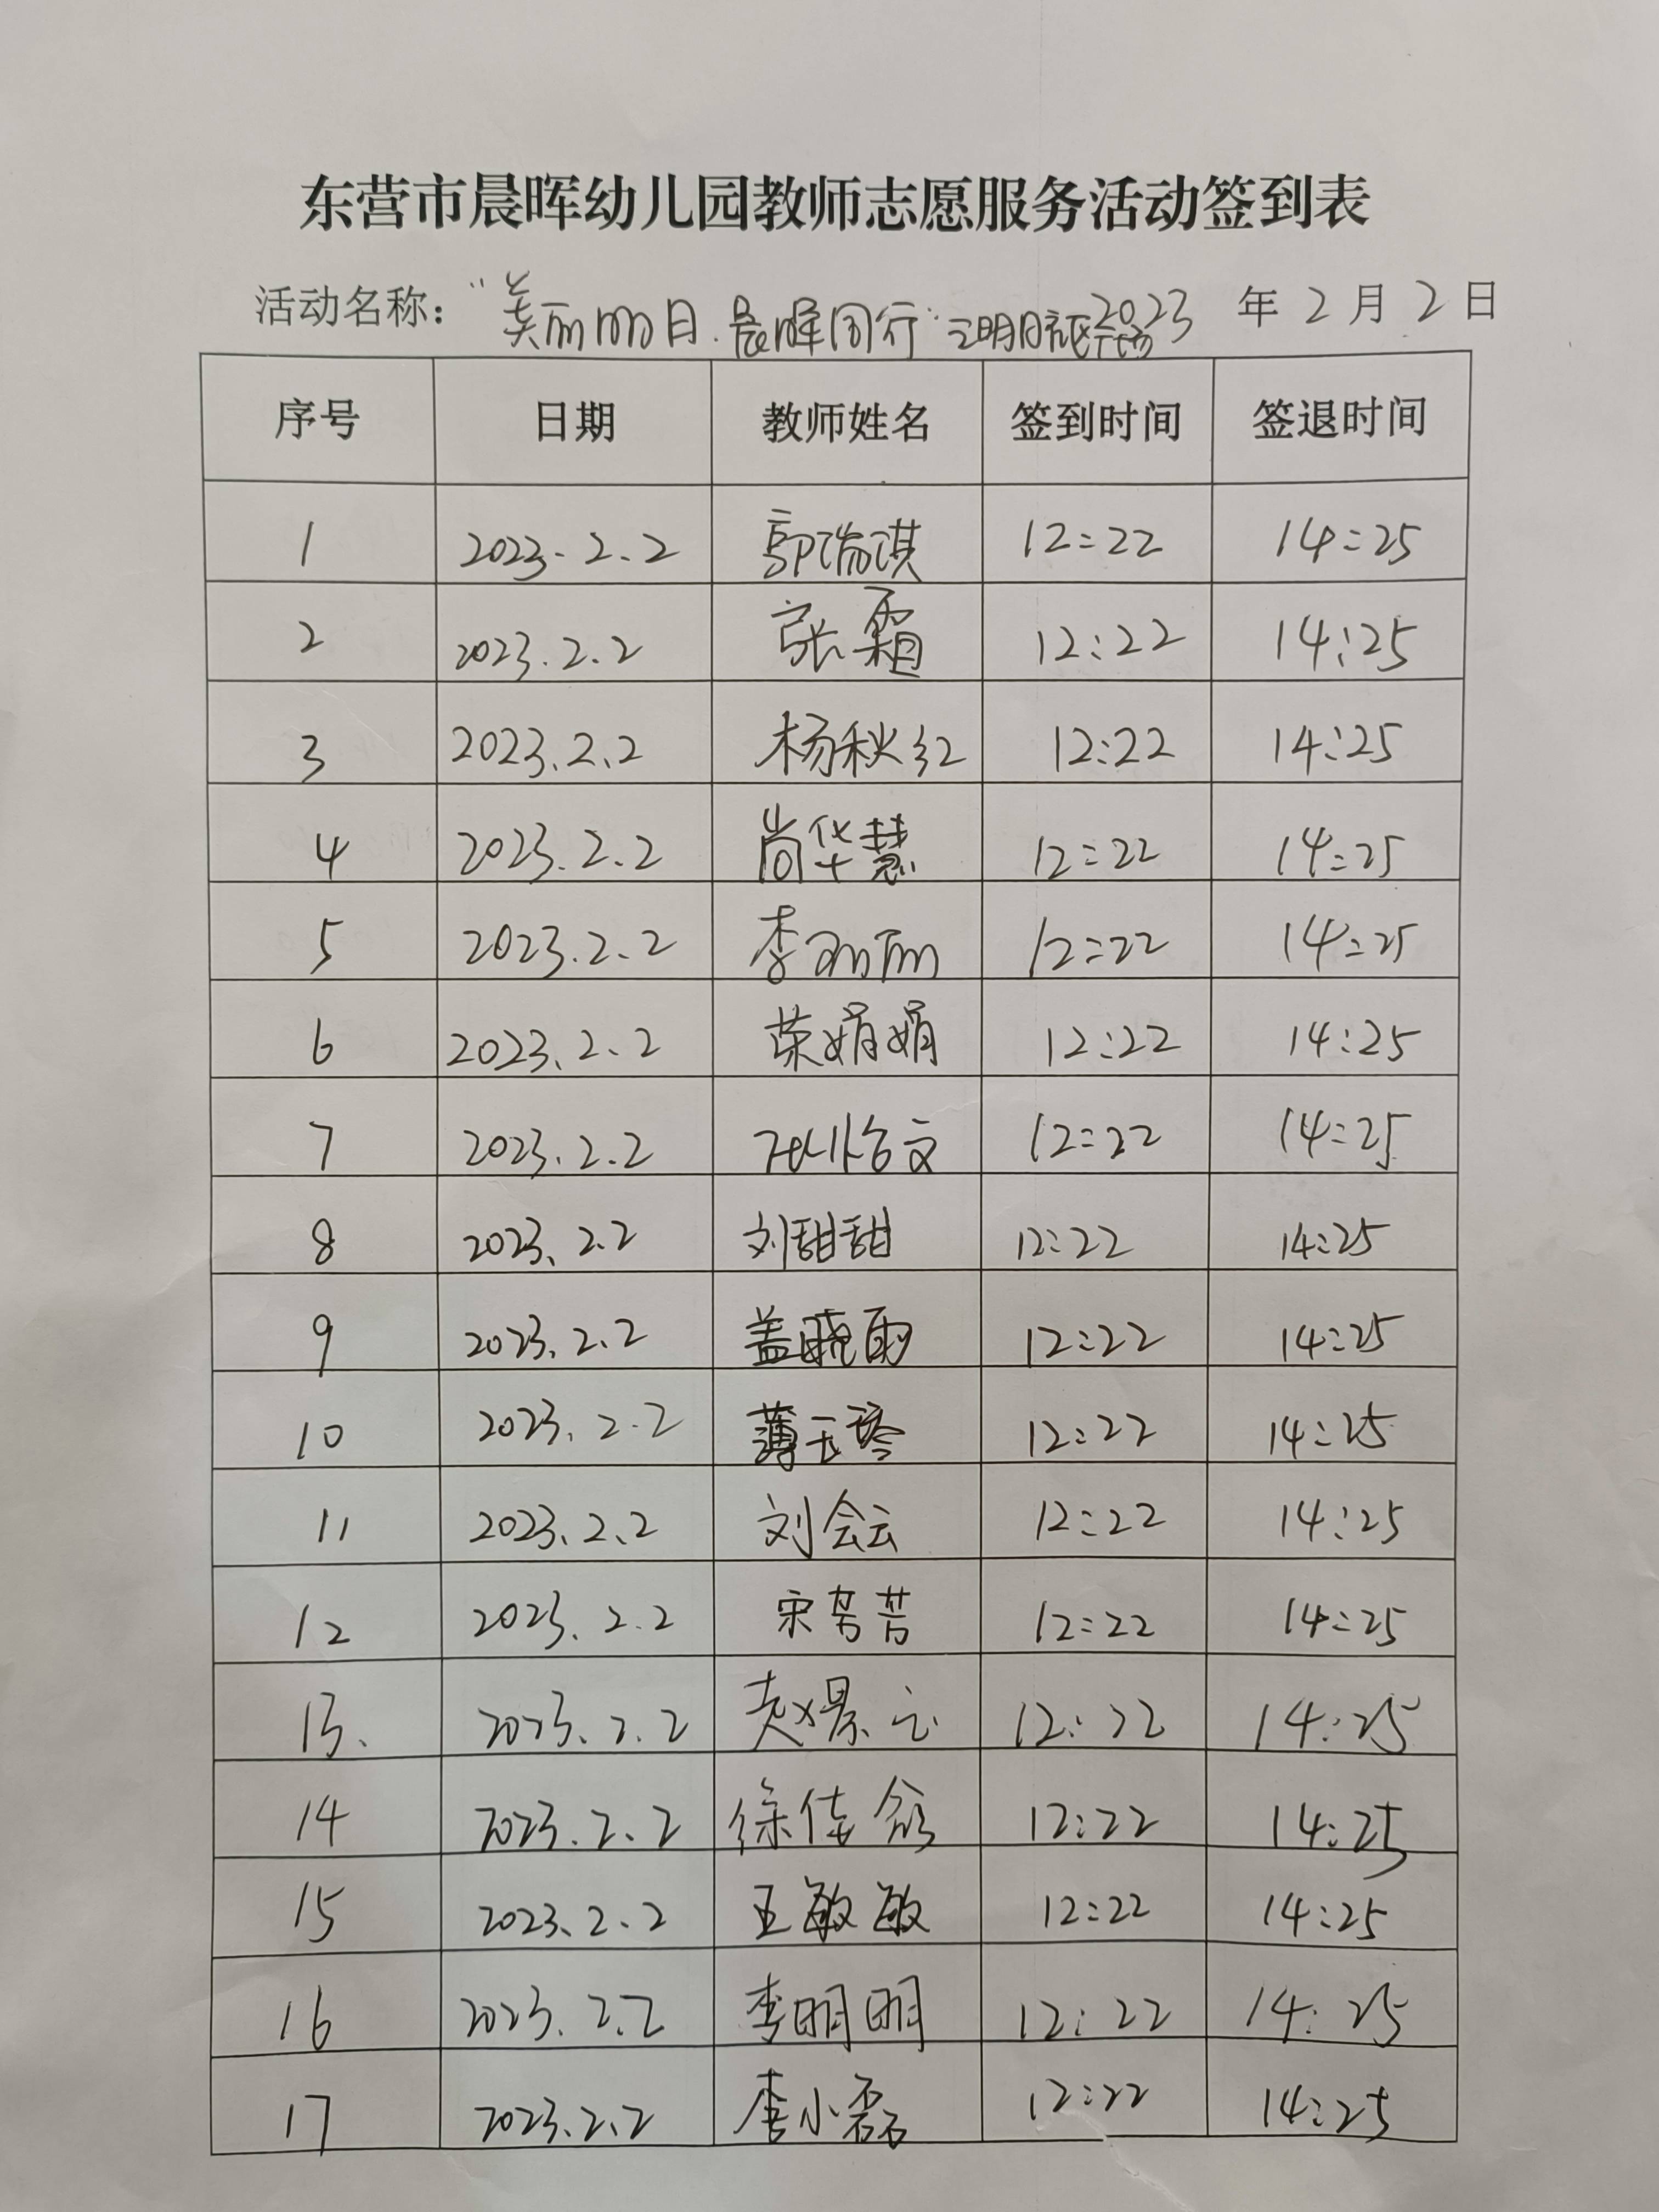 东营市晨晖幼儿园教师志愿服务活动签到表
活动名称：“美丽明日.晨晖同行” 2023 年 2 月 2 日
序号 日期 教师姓名 签到时间 签退时间
1 2023.2.2 郭瑞琪 12:22 14:25
2 2023.2.2 张霜 12:22 14:25
3 2023.2.2 杨秋红 12:22 14:25
4 2023.2.2 尚华慧 12:22 14:25
5 2023.2.2 李丽 12:22 14:25
6 2023.2.2 荣娟娟 12:22 14:25
7 2023.2.2 文 12:22 14:25
8 2023.2.2 刘甜甜 12:22 14:25
9 2023.2.2 盖晓雨 12:22 14:25
10 2023.2.2 薄玉琴 12:22 14:25
11 2023.2.2 刘会云 12:22 14:25
12 2023.2.2 宋芳芳 12:22 14:25
13、 2023.2.2 赵景 12:22 14:25
14 2023.2.2 徐佳 12:22 14:25
15 2023.2.2 王敏敏 12:22 14:25
16 2023.2.2 李明明 12:22 14:25
17 2023.2.2 李小磊 12:22 14:25